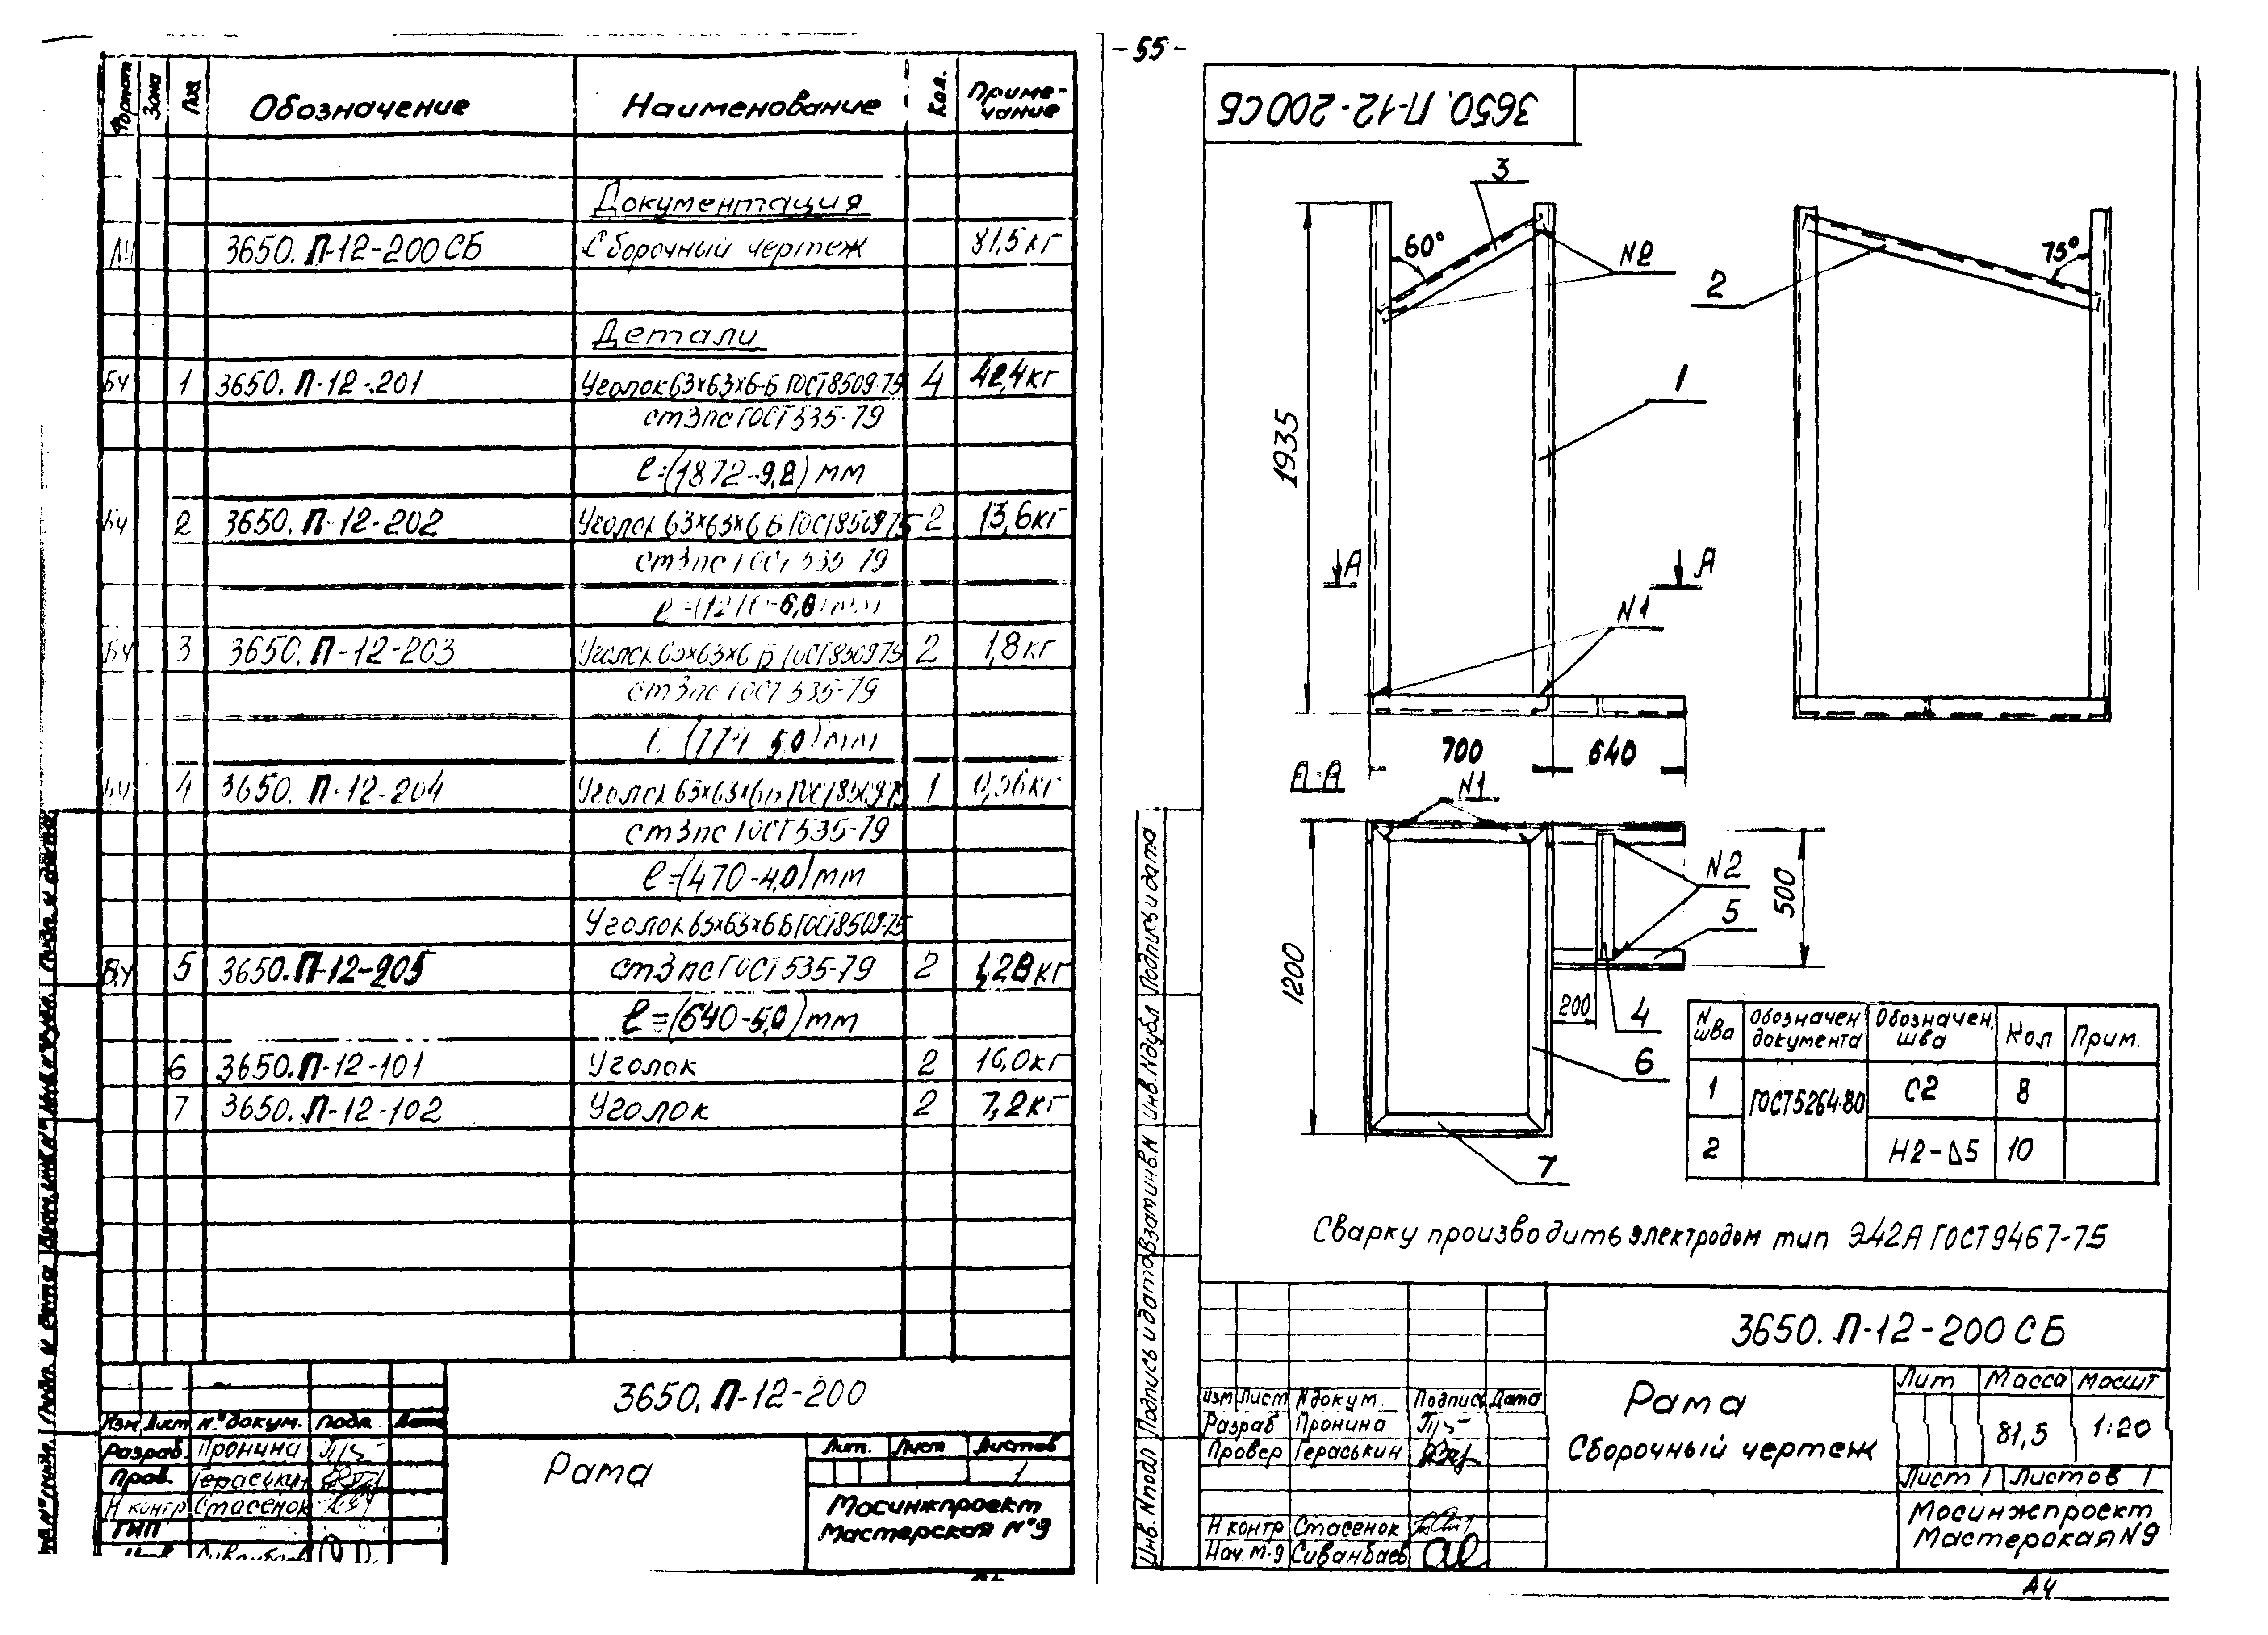 - 55 -
Формат
Зона
Поз
Обозначение
Наименование
Кол.
Приме-
чание
Документация
3650. П-12-200 СБ Сборочный чертеж 81,5 кг
Детали
БЧ 1 3650. П-12-201 Уголок 63×63×6-Б ГОСТ 8509-75 4 42,4 кг
ст 3 пс ГОСТ 535-79
ℓ=(1872-9,2) мм
БЧ 2 3650. П-12-202 Уголок 63×63×6 Б ГОСТ 8509 75 2 13,6 кг
ст 3 пс ГОСТ 535-79
БЧ 3 3650. П-12-203 Уголок 63×63×6 Б ГОСТ 8509 75 2 1,8 кг
ст 3 пс ГОСТ 535-79
5,0) мм
БЧ 4 3650. П-12-204 Уголок 63×63×6 Б ГОСТ 8509 75 1
ст 3 пс ГОСТ 535-79
ℓ=(470-4,0) мм
Уголок 63×63×6 Б ГОСТ 8509-75
БЧ 5 3650. П-12-205 ст 3 пс ГОСТ 535-79 2 1,28 кг
ℓ=(640-5,0) мм
6 3650. П-12-101 Уголок 2 16,0 кг
7 3650. П-12-102 Уголок 2 7,2 кг
3650. П-12-200
Изм Лист № докум. подп. Дата
Разраб. Пронина
Пров. Гераськин
Н контр Стасенок
ГИП
Рама
Лит. Лист Листов
1
Мосинжпроект
Мастерская №9
3650. П-12-200 СБ
3
60°
N2
2
75°
1
1935
А А
N1
700 640
А-А
N1
1200
N2
5
500
200
4
6
7
N шва Обозначен документа Обозначен. шва Кол Прим.
1 ГОСТ 5264-80 С2 8
2 Н2-⊿5 10
Сварку производить электродом тип Э42А ГОСТ 9467-75
Инв. N подл Подпись и дата Взам инв. N Инв. N дубл Подпись и дата
3650. П-12-200 СБ
Изм Лист N докум. Подпись Дата
Разраб Пронина
Провер Гераськин
Н контр Стасенок
Нач. М-9 Сиванбаев
Рама
Сборочный чертеж
Лит Масса Масшт
81,5 1:20
Лист 1 Листов 1
Мосинжпроект
Мастерская N9
А4